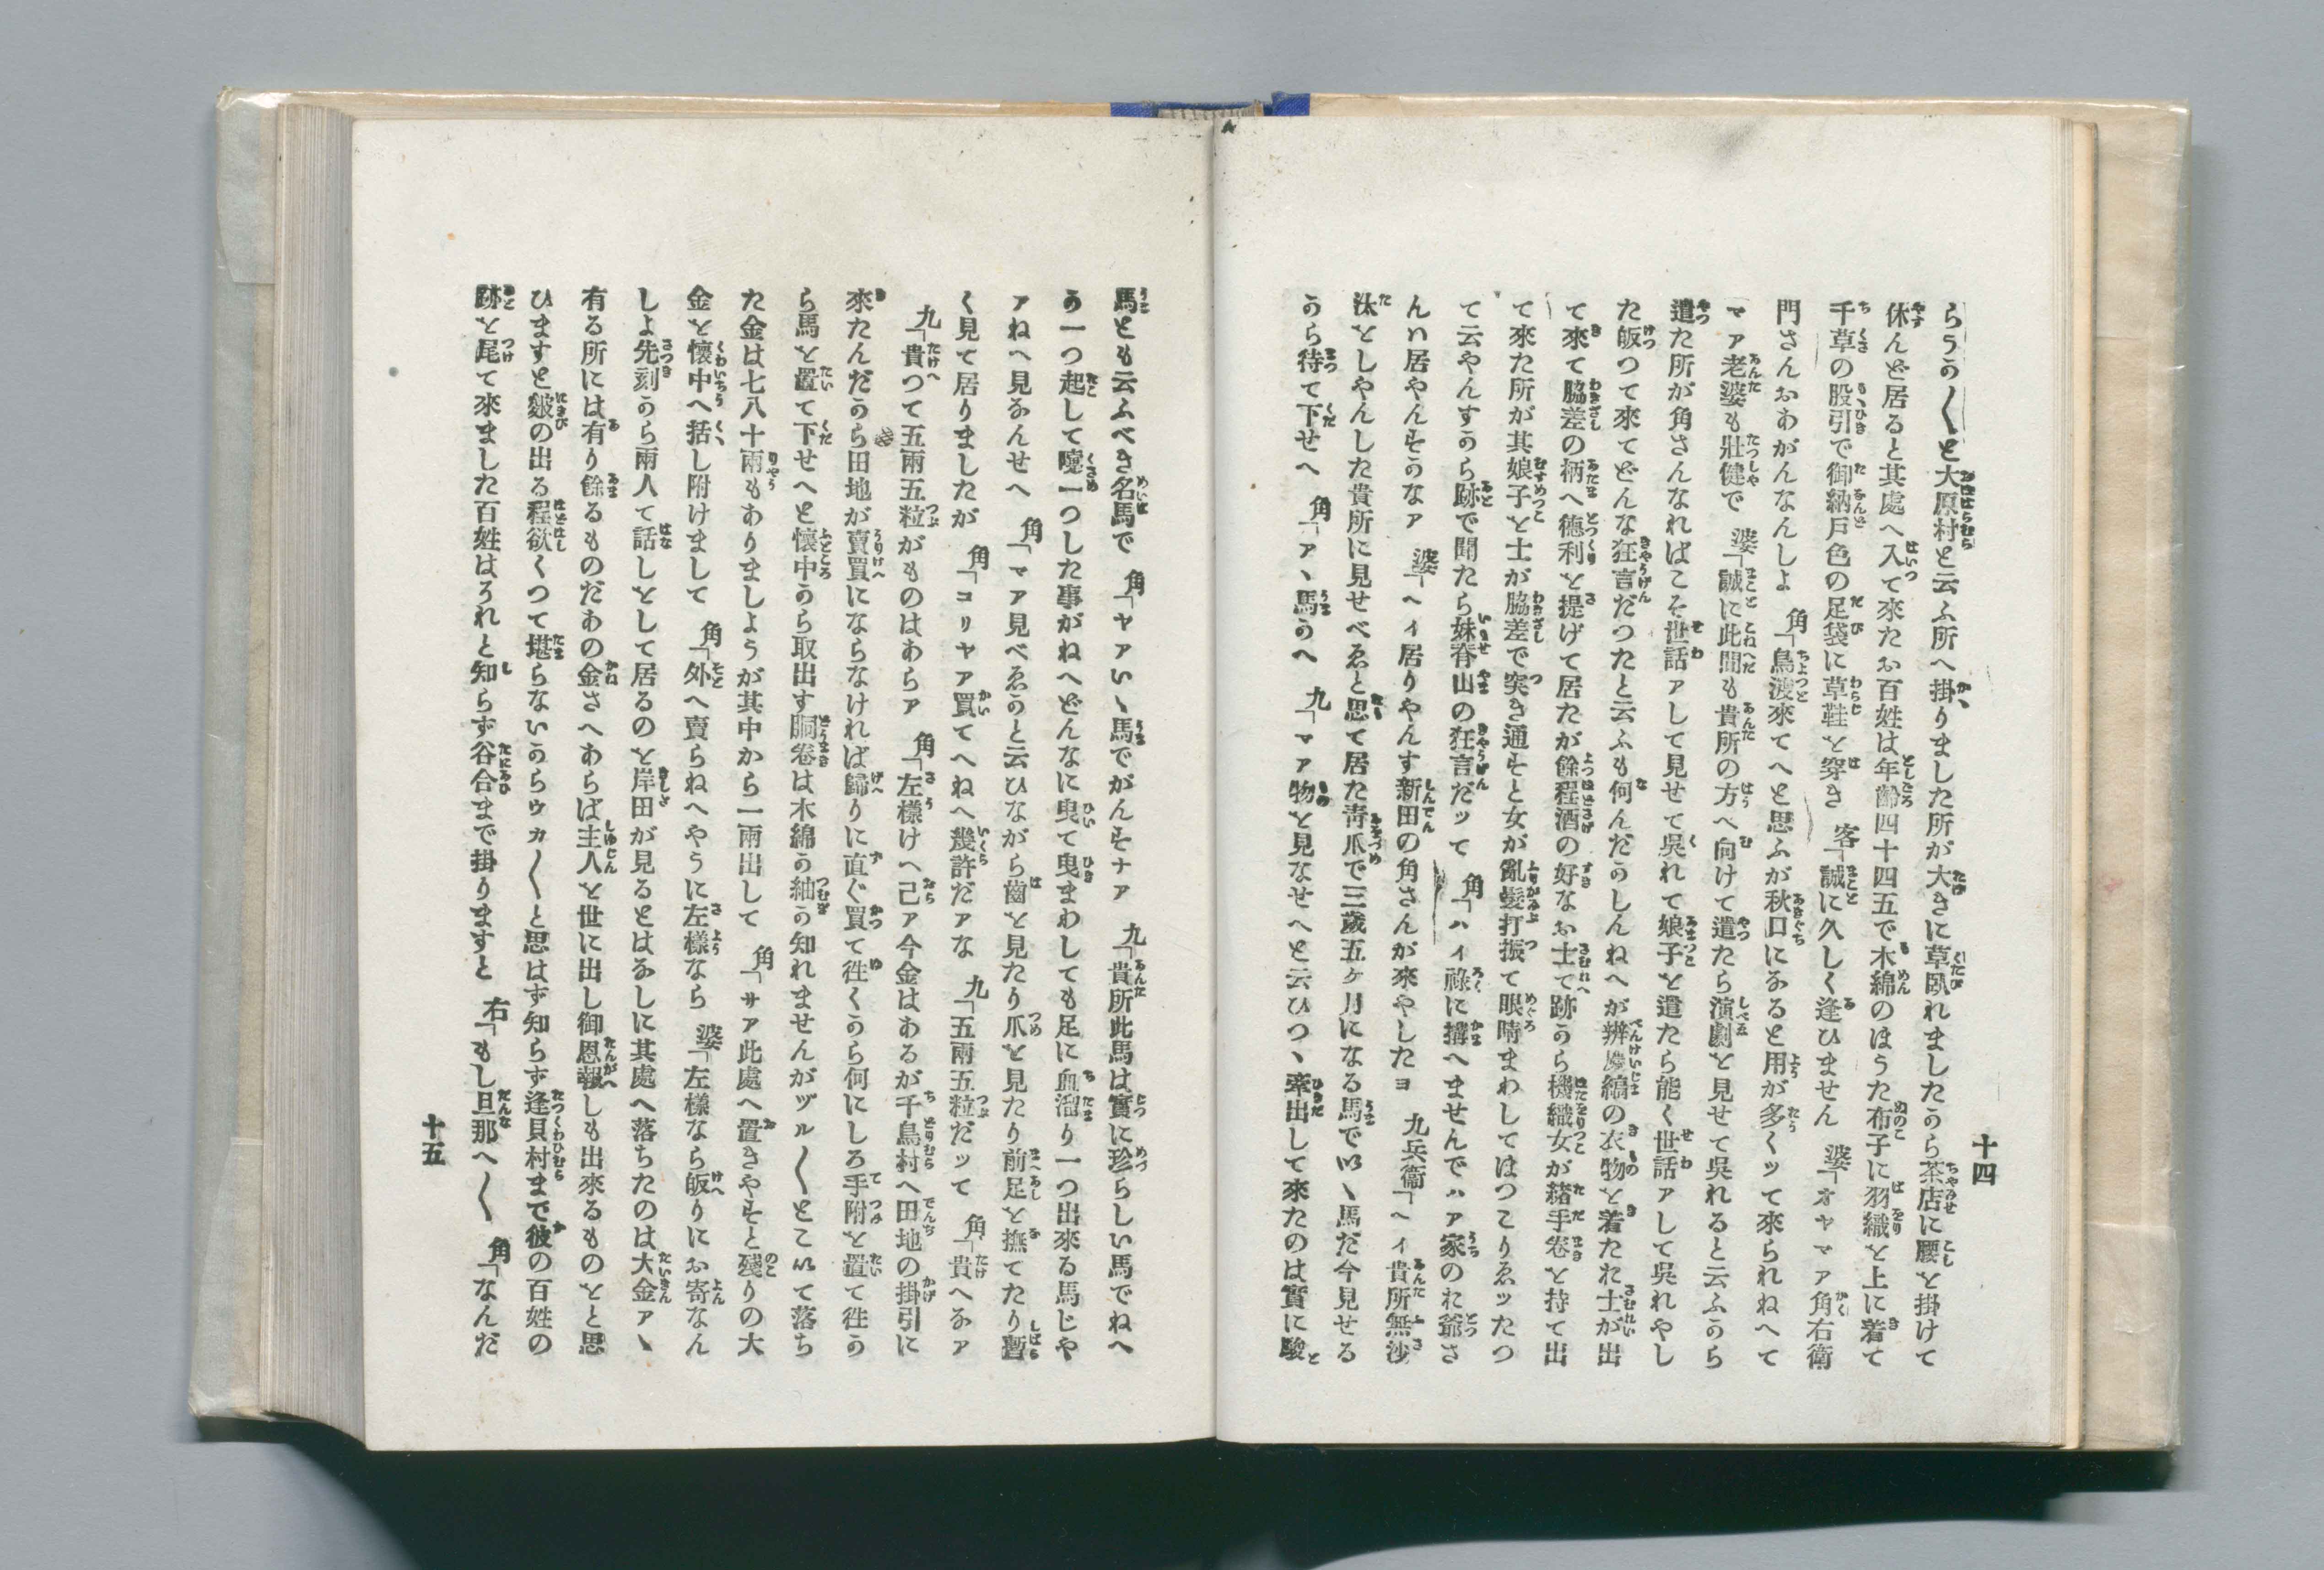 らうか〱と大原村と云ふ所へ掛りました所が大きに草臥れましたから茶店に腰を掛けて
休んで居ると其處へ入て來たお百姓は年齡四十四五で木綿のほうた布子に羽織を上に着て
千草の股引で御納戸色の足袋に草鞋を穿き　客「誠に久しく逢ひません　婆「オヤマア角右衛
門さんおあがんなんしよ　角「鳥渡來てへと思ふが秋口になると用が多くッて來られねへて
マア老婆も壯健で　婆「誠に此間も貴所の方へ向けて遣たら演劇を見せて吳れると云ふから
遣た所が角さんなればこそ世話アして見せて吳れて娘子を遣たら能く世話アして吳れやし
た皈つて來てどんな狂言だつたと云ふも何んだかしんねへが辨慶縞の衣物を着たれ士が出
て來て脇差の柄へ德利を提げて居たが餘程酒の好なお士て跡から機織女が緖手卷を持て出
て來た所が其娘子と士が脇差で突き通すと女が亂髮打振て眼睛まわしてはつこりゑッたつ
て云やんすから跡で聞たら妹脊山の狂言だッて　角「ハイ祿に搆へませんでハア家のれ爺さ
んハ居やんすかなア　婆「ヘイ居りやんす新田の角さんが來やしたヨ　九兵衞「ヘイ貴所無沙
汰としやんした貴所に見せべゑと思て居た靑爪で三歲五ヶ月になる馬でいゝ馬だ今見せる
から待て下せへ　角「アヽ馬かへ　九「マア物を見なせへと云ひつゝ牽出して來たのは實に駿
十四
馬とも云ふべき名馬で　角「ヤアいゝ馬でがんすナア　九「貴所此馬は實に珍らしい馬でねへ
か一つ起して嚔一つした事がねへどんなに曳て曳まわしても足に血溜り一つ出來る馬じや
アねへ見なんせへ　角「マア見べゑかと云ひながら齒を見たり爪を見たり前足を撫てたり暫
く見て居りましたが　角「コリヤア買てへねへ幾許だアな　九「五兩五粒だッて　角「貴へなア
九「貴つて五兩五粒がものはあらア　角「左樣けへ己ア今金はあるが千鳥村へ田地の掛引に
來たんだから田地が賣買にならなければ歸りに直ぐ買て徃くから何にしろ手附を置て徃か
ら馬を置て下せへと懷中から取出す胴卷は木綿か紬か知れませんがヅル〱とこいて落ち
た金は七八十兩もありましようが其中から一兩出して　角「サア此處へ置きやすと殘りの大
金を懷中へ括し附けまして　角「外へ賣らねへやうに左樣なら　婆「左樣なら皈りにお寄なん
しよ先刻から兩人て話しをして居るのを岸田が見るとはなしに其處へ落ちたのは大金アヽ
有る所には有り餘るものだあの金さへあらば主人を世に出し御恩報しも出來るものをと思
ひますと皺の出る程欲くつて堪らないからウカ〱と思はず知らず逢貝村まで彼の百姓の
跡を尾て來ました百姓はそれと知らず谷合まで掛りますと　右「もし旦那へ〱　角「なんだ
十五